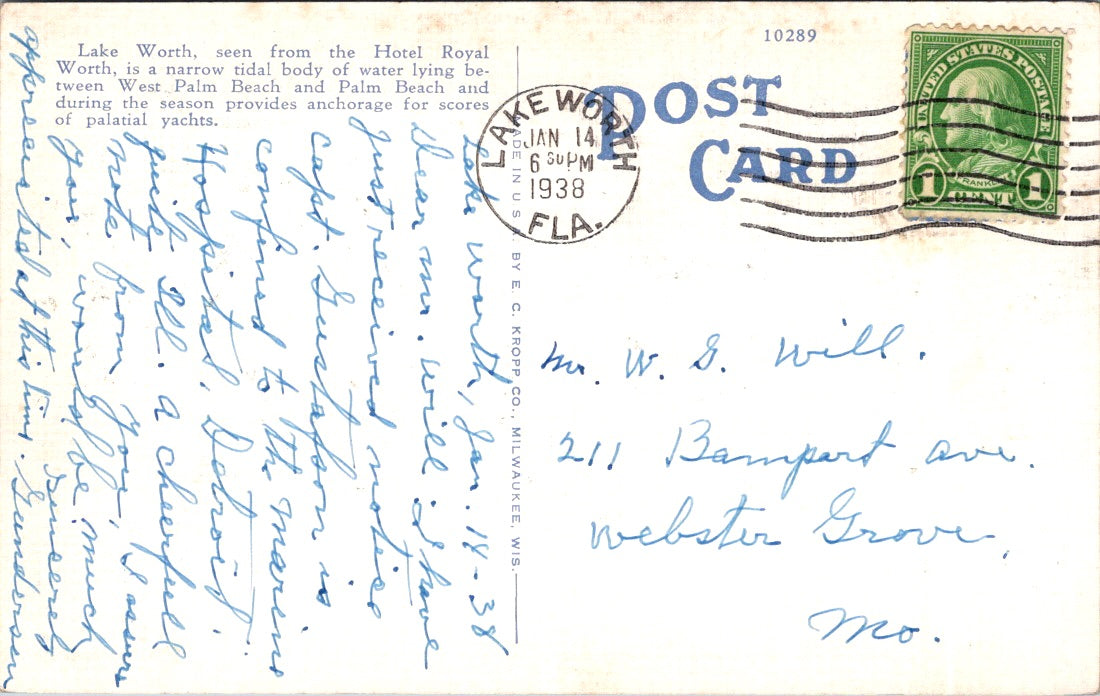 10289
Lake Worth, seen from the Hotel Royal
Worth, is a narrow tidal body of water lying be-
tween West Palm Beach and Palm Beach and
during the season provides anchorage for scores
of palatial yachts.
POST
CARD
LAKE WORTH
JAN 14
6 30 PM
1938
FLA.
UNITED STATES POSTAGE
FRANKLIN
1 CENT 1
MADE IN U.S. BY E. C. KROPP CO., MILWAUKEE, WIS.
Lake Worth, Jan. 14-38
Dear Mr. Will I have
Just received notice
Capt. Gustafson is
confined to the Marine
Hospital, Detroit.
quite Ill. a cheerfull
note from you,
would be much
appreciated at this time.
I assure
you,
Sincerely
Gunderson
Mr. W. G. Will.
211 Bampart ave.
Webster Grove,
Mo.